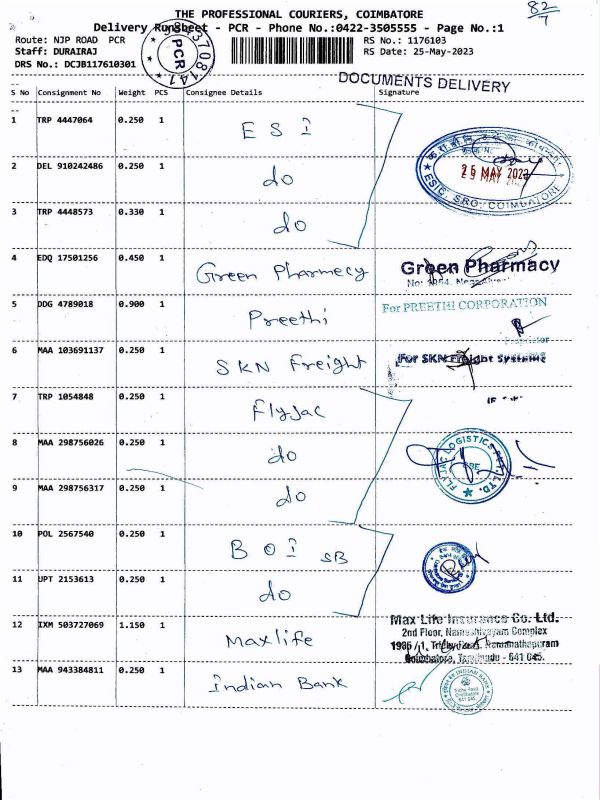 THE PROFESSIONAL COURIERS, COIMBATORE
82/7
Delivery RunSheet - PCR - Phone No.:0422-3505555 - Page No.:1
Route: NJP ROAD PCR
RS No.: 1176103
Staff: DURAIRAJ
RS Date: 25-May-2023
DRS No.: DCJB117610301
PCR
3708147
DOCUMENTS DELIVERY
S No Consignment No Weight PCS Consignee Details Signature
1 TRP 4447064 0.250 1 ESI
2 DEL 910242486 0.250 1 do
25 MAY 2023
ESIC, SRO, COIMBATORE
3 TRP 4448573 0.330 1 do
4 EDQ 17501256 0.450 1 Green Pharmecy
Green Pharmacy
5 DDG 4789018 0.900 1 Preethi
For PREETHI CORPORATION
Proprietor
6 MAA 103691137 0.250 1 SKN Freight
For SKN Freight Systems
7 TRP 1054848 0.250 1 Flyjac
8 MAA 298756026 0.250 1 do
FLYJAC LOGISTICS PVT. LTD.
9 MAA 298756317 0.250 1 do
10 POL 2567540 0.250 1 BOI SB
11 UPT 2153613 0.250 1 do
12 IXM 503727069 1.150 1 Maxlife
Max Life Insurance Co. Ltd.
2nd Floor, Nameshivayam Complex
Ramanathapuram
Coimbatore, Tamilnadu - 641 045.
13 MAA 943384811 0.250 1 Indian Bank
INDIAN BANK